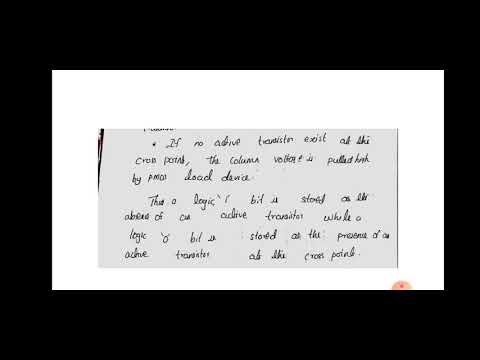 * If no active transistor exist at the
cross point, the column voltage is pulled high
by pmos load device.
Thus a logic '1' bit is stored as the
absence of an active transistor while a
logic '0' bit is stored as the presence of an
active transistor at the cross point.